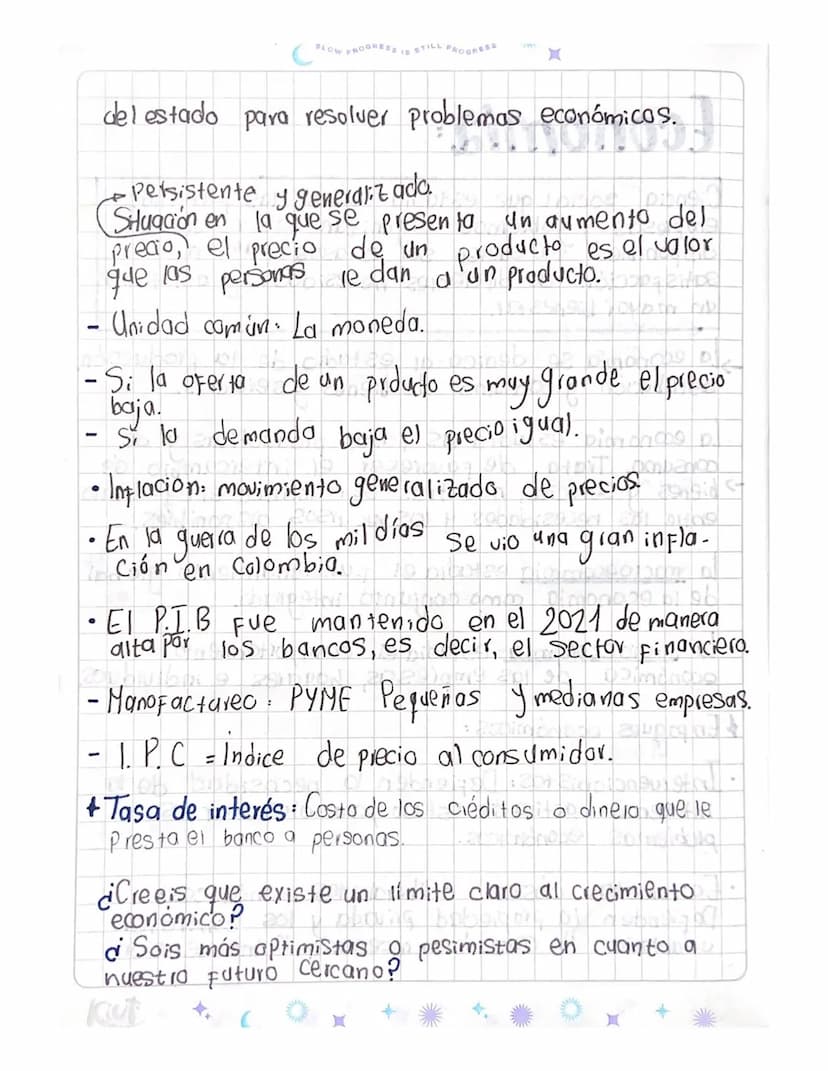 SLOW PROGRESS IS STILL PROGRESS
del estado para resolver problemas económicos.
Persistente y generalizado.
Situación en la que se presenta un aumento del
precio, el precio de un producto es el valor
que las personas le dan a un producto.
- Unidad común: La moneda.
- Si la oferta de un prducto es muy grande el precio
baja.
- Si la demanda baja el precio igual.
• Inflación: movimiento generalizado de precios.
• En la guerra de los mil días se vio una gran infla-
ción en Colombia.
• El P.I.B fue mantenido en el 2021 de manera
alta por los bancos, es decir, el sector financiero.
- Manofacturero: PYME Pequeñas y medianas empresas.
- I.P.C = Índice de precio al consumidor.
+ Tasa de interés: Costo de los créditos o dinero que le
presta el banco a personas.
¿Creeis que existe un límite claro al crecimiento
económico?
¿Sois más optimistas o pesimistas en cuanto a
nuestro futuro cercano?
Kiut